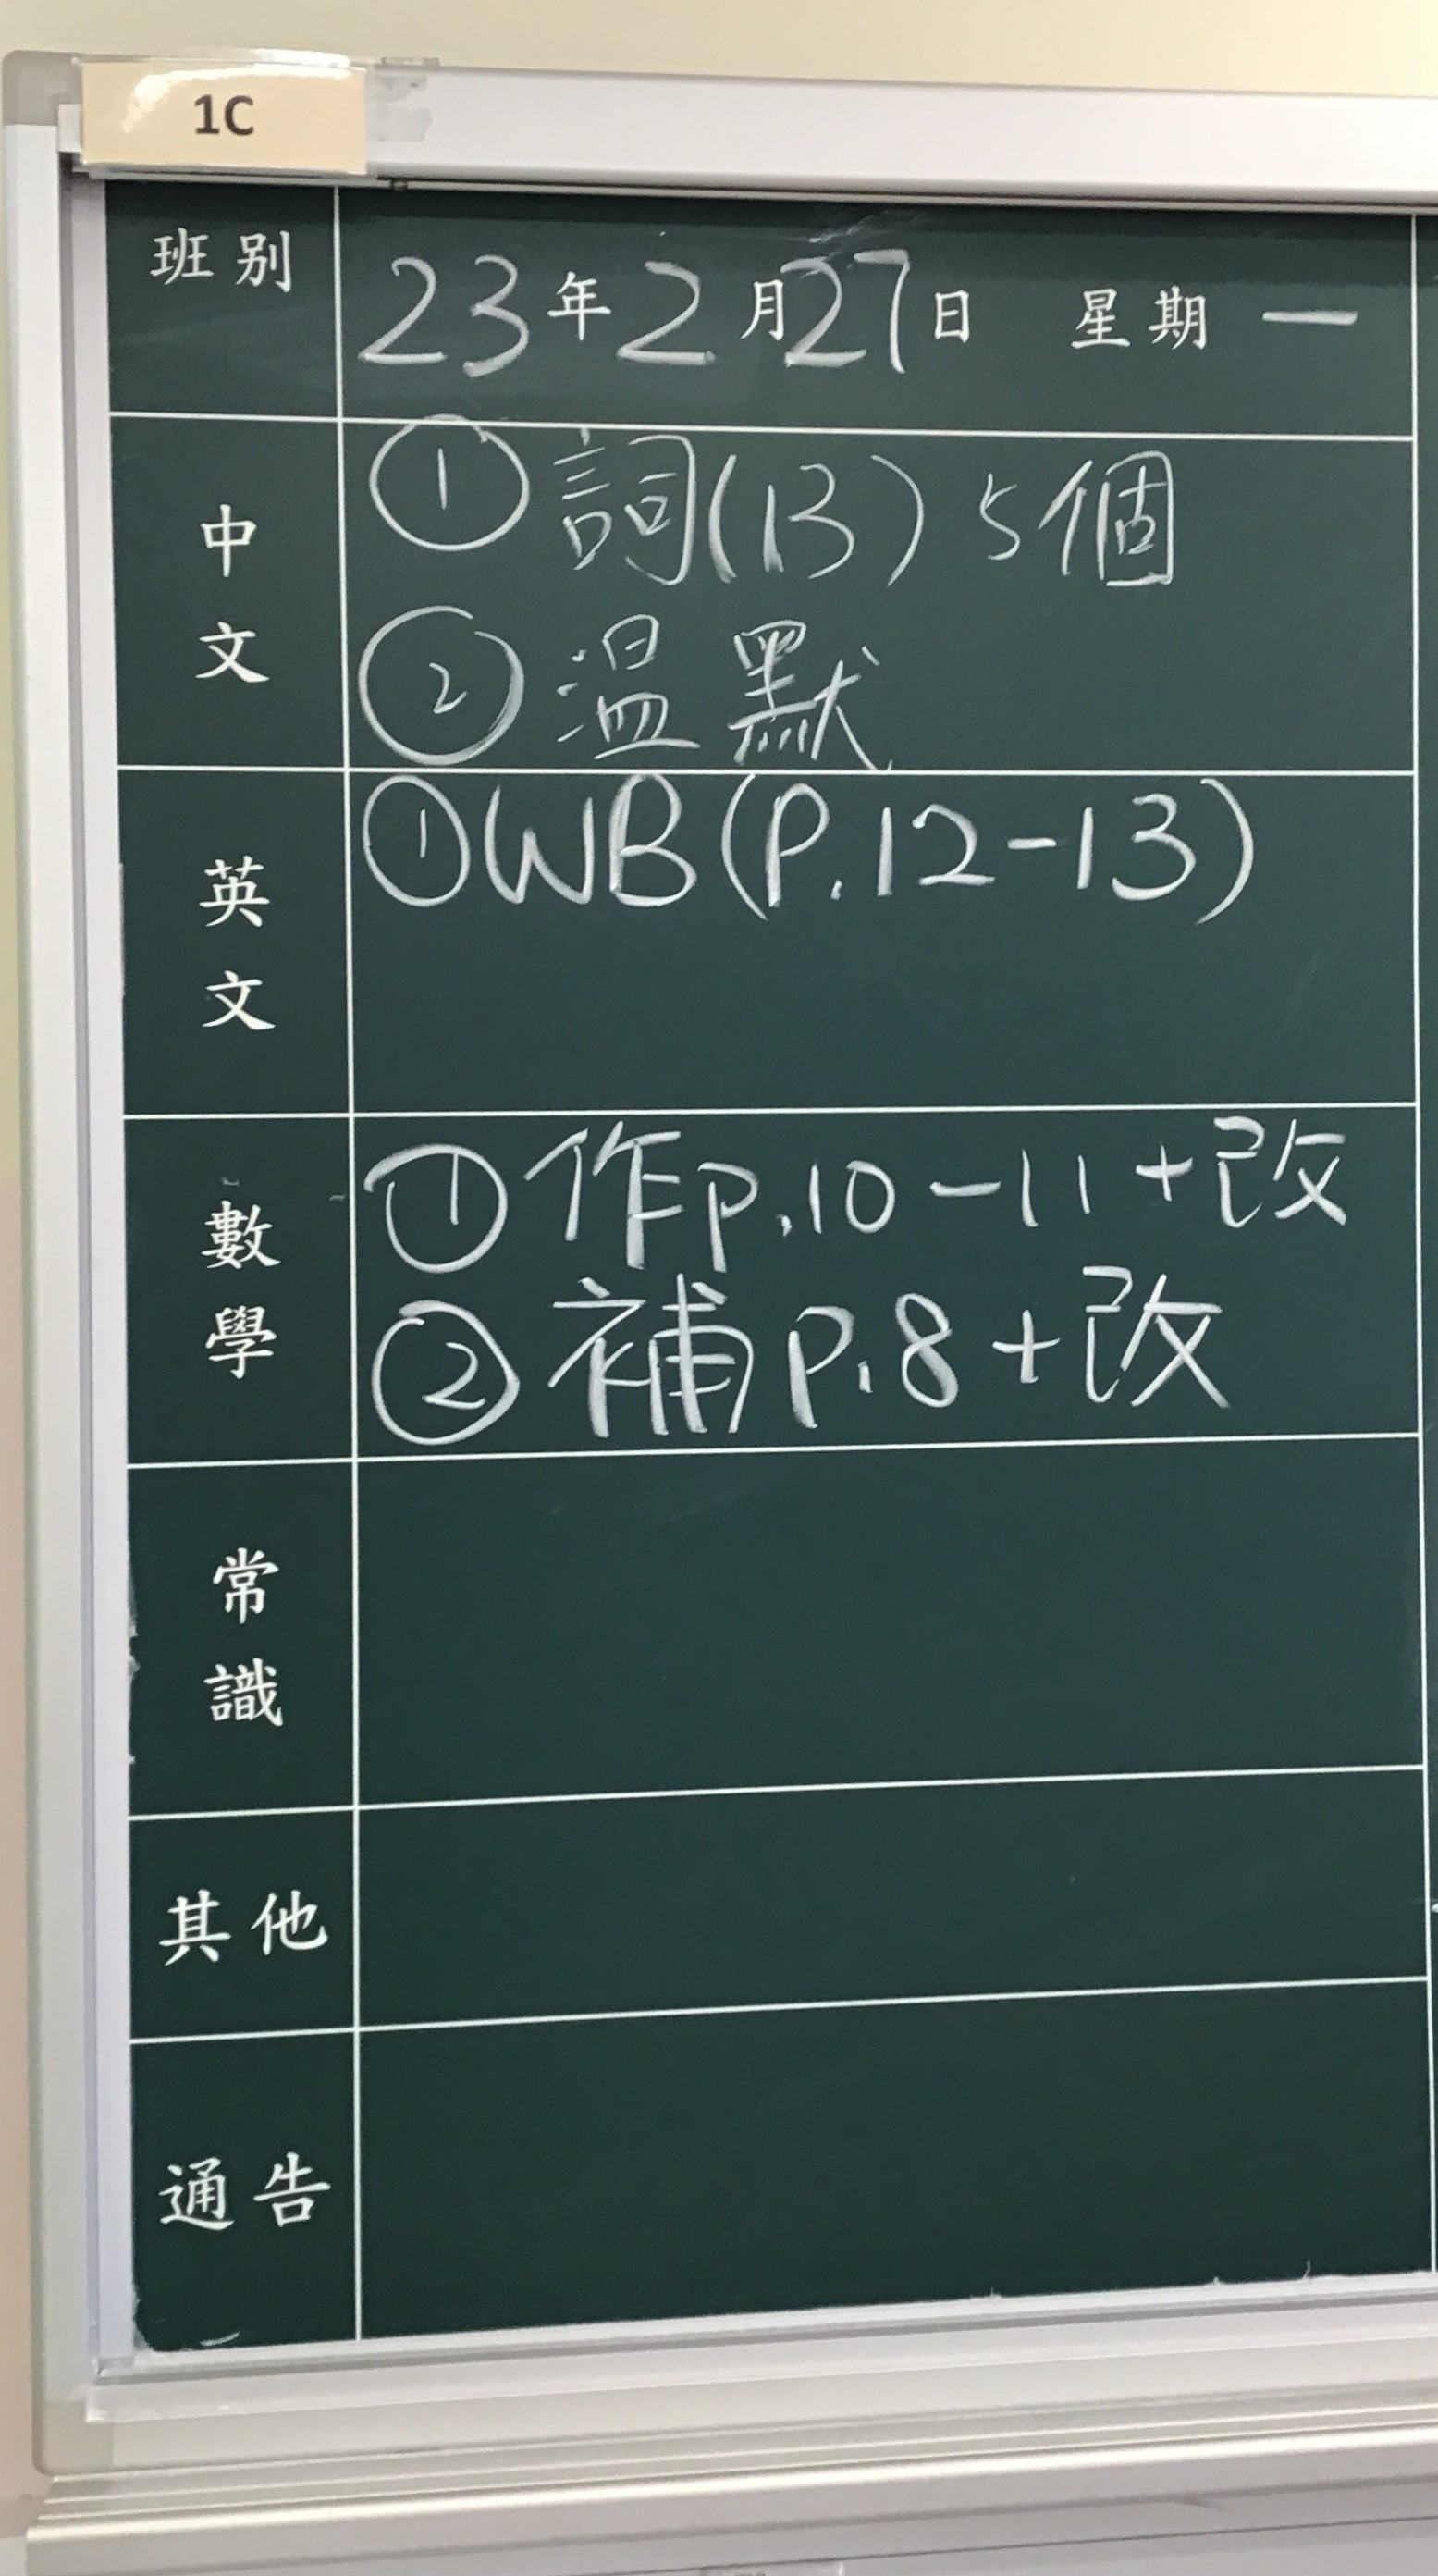 1C
班別
23年2月27日 星期一
中文
①詞(13)5個
②温默
英文
①WB(P.12-13)
數學
①作p.10-11+改
②補p.8+改
常識
其他
通告